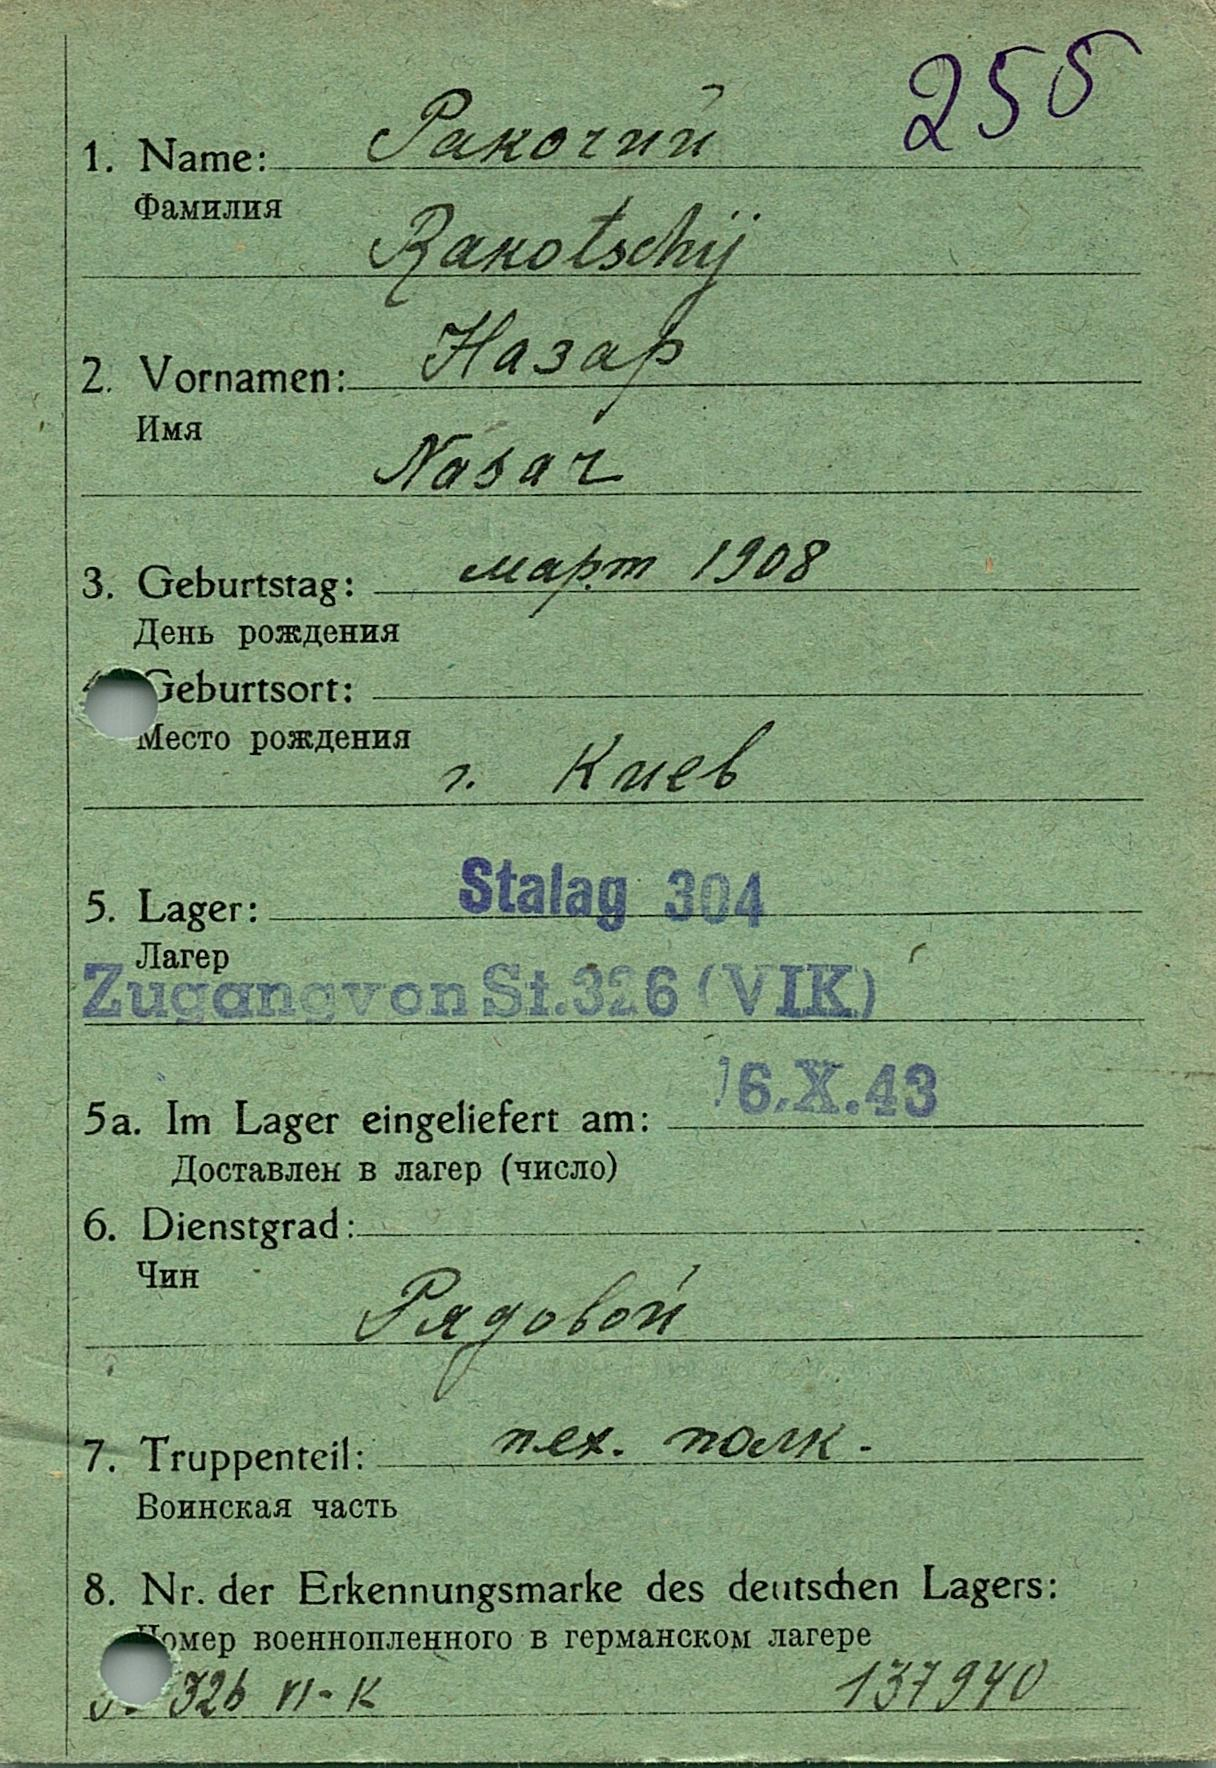 255
1. Name: Ракочий
Фамилия
Rakotschij
2. Vornamen: Назар
Имя
Nasar
3. Geburtstag: март 1908
День рождения
Geburtsort:
Место рождения
г. Киев
5. Lager: Stalag 304
Лагер
Zugang von St. 326 (VIK)
16.X.43
5a. Im Lager eingeliefert am:
Доставлен в лагер (число)
6. Dienstgrad:
Чин
Рядовой
7. Truppenteil: пех. полк.
Воинская часть
8. Nr. der Erkennungsmarke des deutschen Lagers:
Номер военнопленного в германском лагере
326 VI-K 137940